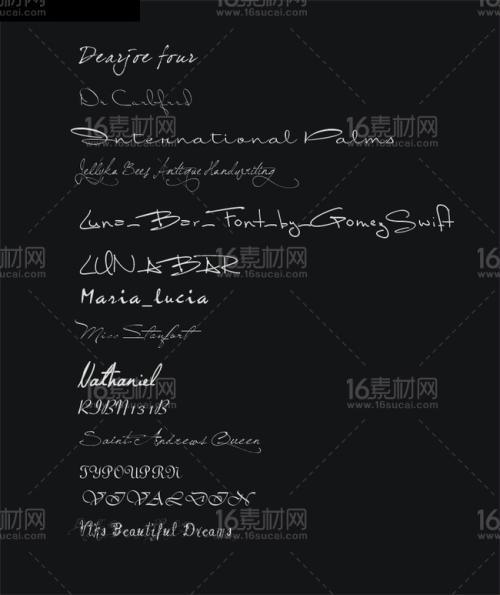 Dearjoe four
Dr Carbfred
International Palms
Jellyka Bees Antique Handwriting
Luna_Bar_Font_by_GomezSwift
LUNABAR
Maria_lucia
Miss Stanfort
Nathaniel
RIBN131B
Saint-Andrews Queen
TYPOUPRN
VIVALDIN
Vtks Beautiful Dreams
16素材网
www.16sucai.com